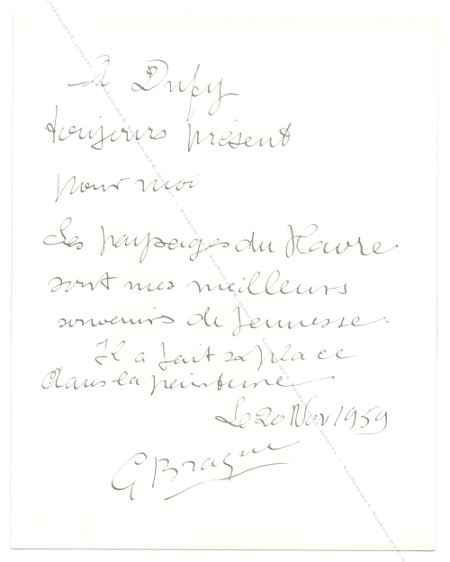 A Dufy
toujours présent
pour moi
Les paysages du Havre
sont mes meilleurs
souvenirs de jeunesse.
Il a fait sa place
dans la peinture
Le 20 Nov 1959
G Braque